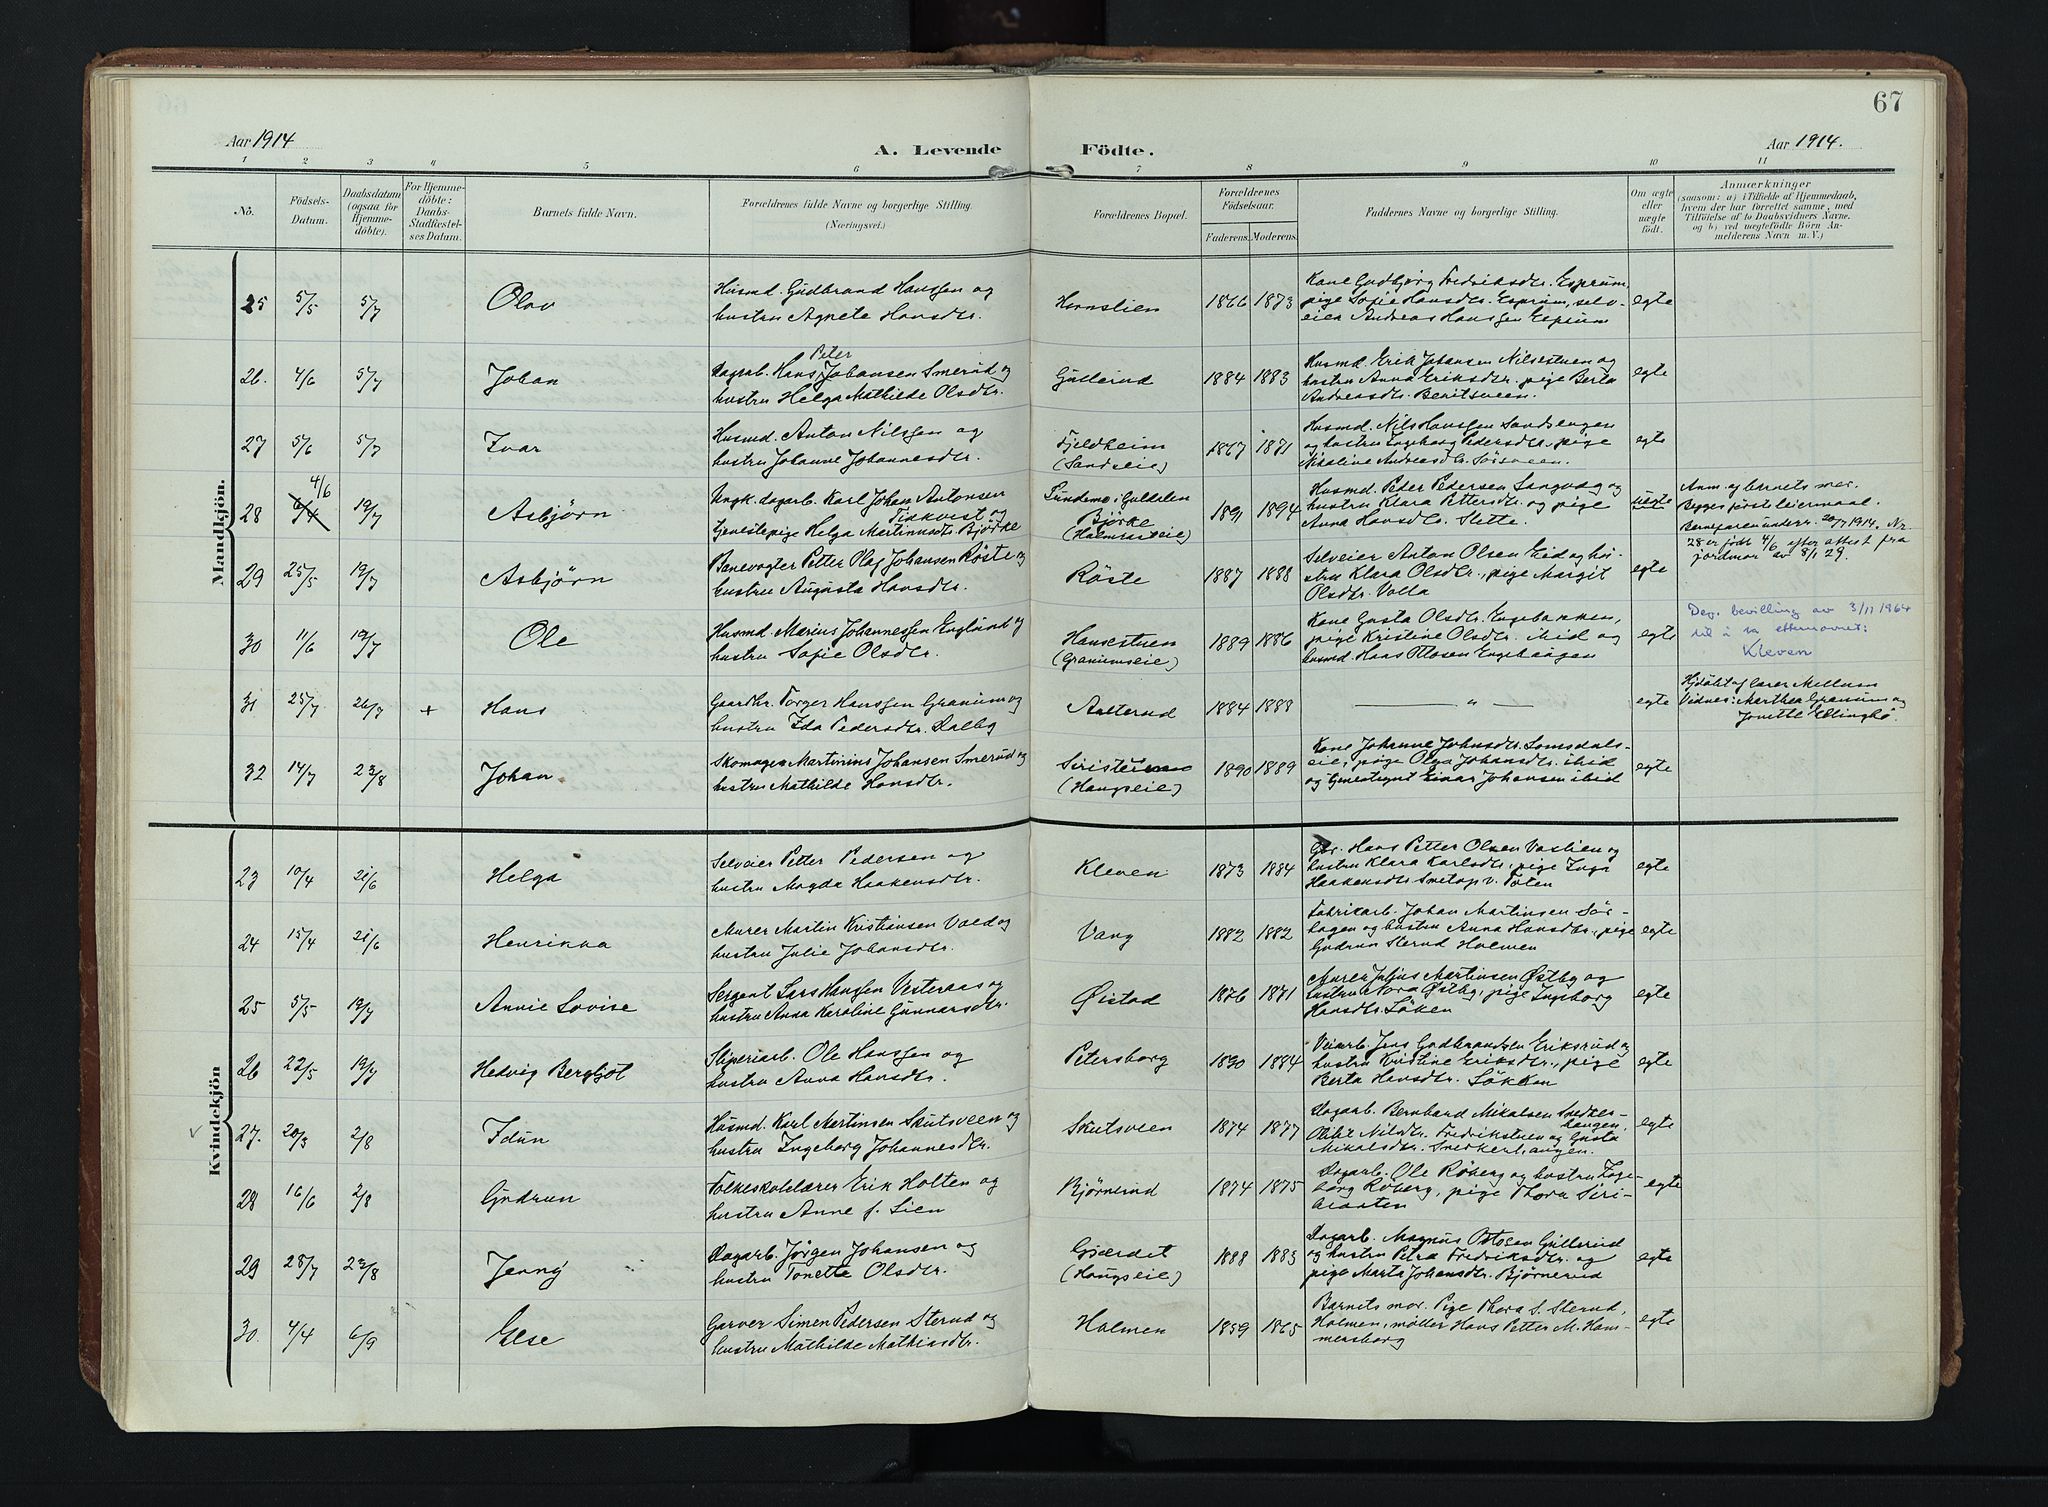 67
Aar 1914
A. Levende
Födte.
Aar 1914.
1 2 3 4 5 6 7 8 9 10 11
No.
Födsels-
Datum.
Daabsdatum
(ogsaa for
Hjemme-
döbte).
For Hjemme-
döbte:
Daabs-
Stadfæstel-
ses Datum.
Barnets fulde Navn.
Forældrenes fulde Navne og borgerlige Stilling.
(Næringsvei.)
Forældrenes Bopæl.
Forældrenes
Födselsaar.
Faderens. Moderens.
Faddernes Navne og borgerlige Stilling.
Om ægte
eller
uægte
födt.
Anmærkninger
(saasom: a) i Tilfælde af Hjemmedaab,
hvem der har forrettet samme, med
Tilföielse af to Daabsvidners Navne.
og b) ved uægtefödte Börn An-
melderens Navn m. V.)
Mandkjön.
25 5/5 5/7 Olav
Husmd. Gudbrand Hanssen og
hustru Agnete Hansdtr.
Hornslien 1866 1873
Kone Gudbjørg Fredriksdtr. Esprum,
pige Sofie Hansdtr. Esprum, selv-
eier Andreas Hanssen Esprum
egte
26. 4/6 5/7 Johan
Peter
Dagarb. Hans Johansen Smerud og
hustru Helga Mathilde Olsdtr.
Gullerud 1884 1883
Husmd. Erik Johansen Nilsestuen og
hustru Anna Eriksdtr. pige Berta
Andreasdtr. Beritsveen.
egte
27 5/6 5/7 Ivar
Husmd. Anton Nilssen og
hustru Johanne Johannesdtr.
Fjeldheim
(Sandseie)
1867 1871
Husmd. Nils Hanssen Sandsengen
og hustru Ingeborg Pedersdtr., pige
Nikoline Andreasdtr. Sørsveen.
egte
4/6
28 6/4 19/7 Asbjørn
Ungk. dagarb. Karl Johan Antonsen
Tidkvist og
tjenestepige Helga Martinusdtr. Bjørke
Lundemo i Guldalen
Bjørke
(Holmrasteie)
1891 1894
Husmd. Peder Pedersen Langvag og
hustru Klara Pettersdtr. og pige
Anna Hansdtr. Slette.
uegte
Anm. af barnets mor.
Begges første leiermaal.
Barnefaren underr. 20/7 1914. Nr.
28 er født 4/6 efter attest fra
jordmor av 8/1 29.
29 25/5 19/7 Asbjørn
Banevogter Petter Olaf Johansen Røste og
hustru Augusta Hansdtr.
Røste 1887 1888
Selveier Anton Olsen Eid og hu-
stru Klara Olsdtr., pige Margit
Olsdtr. Volla
egte
30 11/6 19/7 Ole
Husmd. Marius Johannessen Englund og
hustru Sofie Olsdtr.
Hansestuen
(Granumseie)
1889 1886
Kone Gusta Olsdtr. Engebakken,
pige Kristine Olsdtr. ibid og
husmd. Hans Ottosen Engehaugen
egte
Dep. bevilling av 3/11 1964
til å ta etternavnet:
Kleven
31 25/7 26/7 + Hans
Gaardbr. Torger Hanssen Granum og
hustru Ida Pedersdtr. Dalby
Aalterud 1884 1888
— " —
egte
Hjdøbt af lærer Mellum
Vidner: Marthea Granum og
Jonette Ellingbø.
32 14/7 23/8 Johan
Skomager Martinius Johansen Smerud og
hustru Mathilde Hansdtr.
Siristuen
(Haugseie)
1890 1889
Kone Johanne Johnsdtr. Lomsdals-
eie, pige Olga Johansdtr. ibid
og tjenestegut Einar Johansen ibid
egte
Kvindekjön
23 10/4 21/6 Helga
Selveier Petter Pedersen og
hustru Magda Haakensdtr.
Kleven 1873 1884
Gbr. Hans Petter Olsen Vastien og
hustru Klara Karlsdtr., pige Inga
Haakensdtr. Smetop v. Toten
egte
24 15/4 21/6 Henrikka
Murer Martin Kristiansen Vold og
hustru Julie Johansdtr.
Vang 1882 1882
Fabrikarb. Johan Martinsen Sør-
hagen og hustru Anna Hansdtr., pige
Gudrun Sterud Holmen
egte
25 5/5 19/7 Annie Lovise
Sergent Lars Hanssen Vesteraas og
hustru Anna Karoline Gunnarsdtr.
Øistad 1876 1871
Murer Julius Martinsen Østby og
hustru Nora Østby, pige Ingeborg
Hansdtr. Løken
egte
26 22/5 19/7 Hedvig Bergljot
Sliperiarb. Ole Hanssen og
hustru Anna Hansdtr.
Petersborg 1890 1884
Veiarb. Jens Gudbrandsen Eriksrud og
hustru Kristine Eriksdtr., pige
Berta Hansdtr. Løkken
egte
27. 20/3 2/8 Idun
Husmd. Karl Martinsen Skutsveen og
hustru Ingeborg Johannesdtr.
Skutsveen 1874 1877
Dagarb. Bernhard Mikalsen Snedker-
haugen,
Oline Nilsdtr. Fredrikstuen og Gusta
Mikalsdtr. Snedkerhaugen.
egte
28 16/6 2/8 Gudrun
Folkeskolelærer Erik Holten og
hustru Anne f. Lien
Bjørnerud 1874 1875
Dagarb. Ole Røberg og hustru Inge-
borg Røberg, pige Thora Siri-
braaten
egte
29 28/7 23/8 Jenny
Dagarb. Jørgen Johansen og
hustru Tonette Olsdtr.
Gjærdet
(Haugseie)
1888 1883
Dagarb. Magnus Ottosen Gullerud
og hustru Petra Fredriksdtr. og
pige Marta Johansdtr. Bjørnerud
egte
30. 4/4 6/9 Else
Garver Simen Pedersen Sterud og
hustru Mathilde Mathiasdtr.
Holmen 1859 1865
Barnets mor. Pige Thora S. Sterud,
Holmen, møller Hans Petter M. Ham-
mersborg
egte